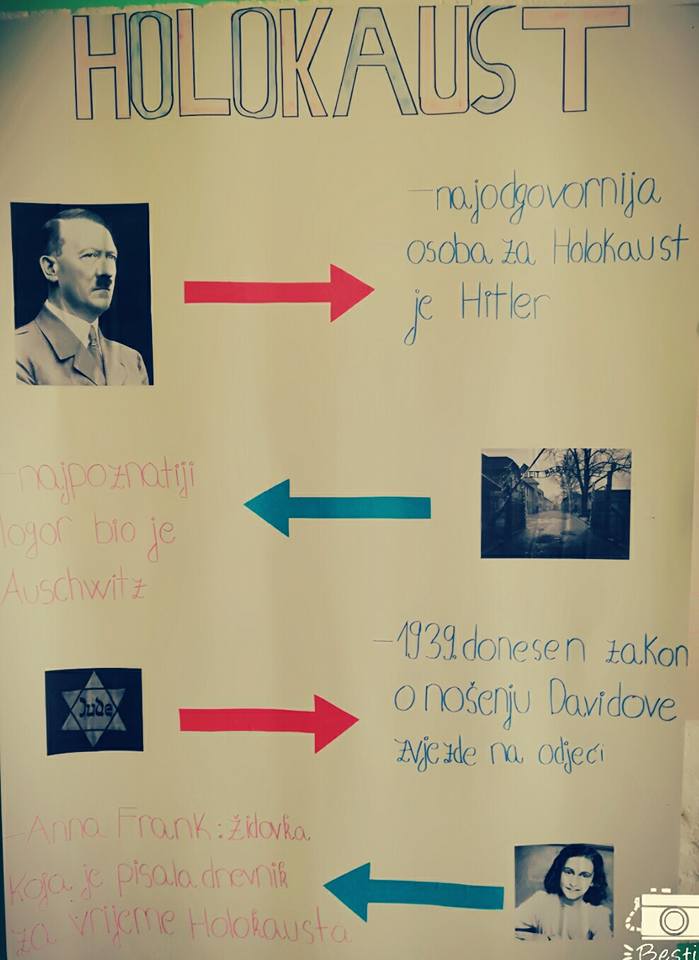 HOLOKAUST
-najodgovornija
osoba za Holokaust
je Hitler
-najpoznatiji
logor bio je
Auschwitz
-1939.donesen zakon
o nošenju Davidove
zvjezde na odjeći
Jude
-Anna Frank: židovka
koja je pisala dnevnik
za vrijeme Holokausta
Besti